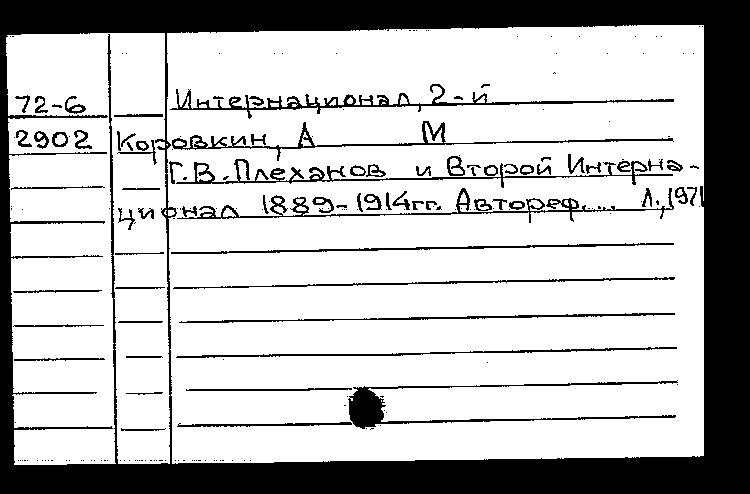 72-6 Интернационал, 2-й
2902 Коровкин, А М
Г.В.Плеханов и Второй Интерна-
ционал 1889-1914гг. Автореф.... Л., 1971